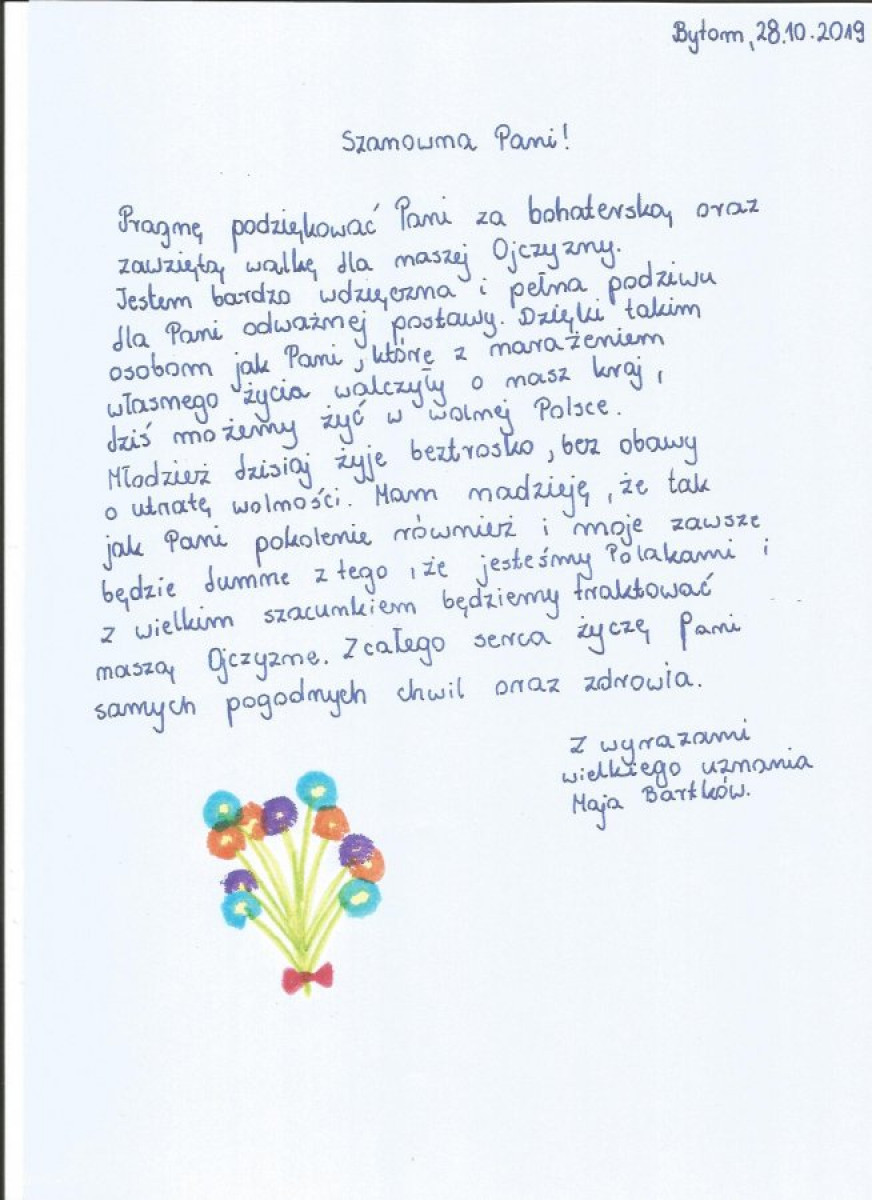 Bytom, 28.10.2019
Szanowna Pani!
Pragnę podziękować Pani za bohaterską oraz
zawziętą walkę dla naszej Ojczyzny.
Jestem bardzo wdzięczna i pełna podziwu
dla Pani odważnej postawy. Dzięki takim
osobom jak Pani, które z narażeniem
własnego życia walczyły o nasz kraj,
dziś możemy żyć w wolnej Polsce.
Młodzież dzisiaj żyje beztrosko, bez obawy
o utratę wolności. Mam nadzieję, że tak
jak Pani pokolenie również i moje zawsze
będzie dumne z tego, że jesteśmy Polakami i
z wielkim szacunkiem będziemy traktować
naszą Ojczyznę. Z całego serca życzę Pani
samych pogodnych chwil oraz zdrowia.
Z wyrazami
wielkiego uznania
Maja Bartków.